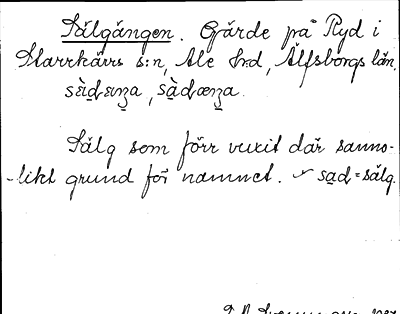 Sälgängen. Gärde på Ryd i
Starrkärrs s:n, Ale hrd, Älfsborgs län.
sɛ̀d̯ɛŋa, sæ̀d̯æŋa
Sälg som förr vuxit där sanno-
-likt grund för namnet. sad = sälg.